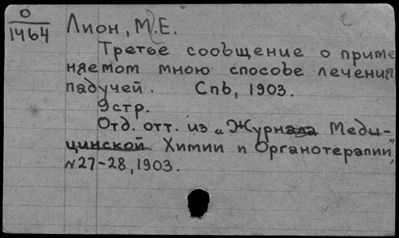 О
1464
Лион, М.Е.
Третье сообщение о приме
няемом мною способе лечения
падучей. Спб, 1903.
9стр.
Отд. отт. из „Журнала Меди-
цинской Химии и Органотерапии",
№27-28, 1903.